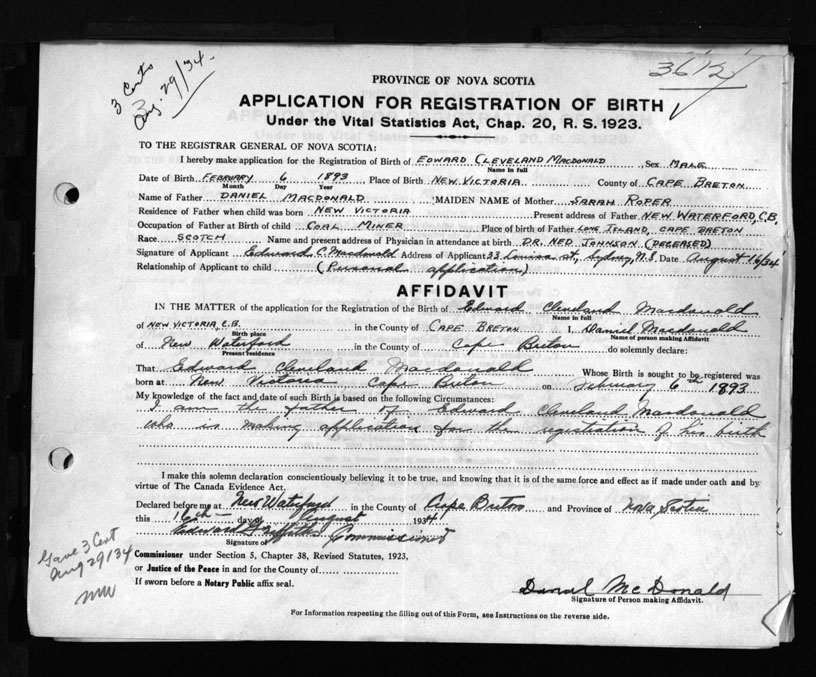 3612
3 Certs
Aug. 29/34.
PROVINCE OF NOVA SCOTIA
APPLICATION FOR REGISTRATION OF BIRTH
Under the Vital Statistics Act, Chap. 20, R. S. 1923.
TO THE REGISTRAR GENERAL OF NOVA SCOTIA:
I hereby make application for the Registration of Birth of EDWARD CLEVELAND MACDONALD Sex MALE
Name in full
Date of Birth FEBRUARY 6 1893 Place of Birth NEW VICTORIA County of CAPE BRETON
Month Day Year
Name of Father DANIEL MACDONALD MAIDEN NAME of Mother SARAH ROPER
Residence of Father when child was born NEW VICTORIA Present address of Father NEW WATERFORD, C.B.
Occupation of Father at Birth of child COAL MINER Place of birth of Father LONG ISLAND, CAPE BRETON
Race SCOTCH Name and present address of Physician in attendance at birth DR. NED JOHNSON (DECEASED)
Signature of Applicant Edward C. Macdonald Address of Applicant 33 Louisa st., Sydney, N.S. Date August 16/34
Relationship of Applicant to child (Personal application)
AFFIDAVIT
IN THE MATTER of the application for the Registration of the Birth of Edward Cleveland Macdonald
Name in full
of NEW VICTORIA, C.B. in the County of CAPE BRETON I, Daniel Macdonald
Birth place Name of person making Affidavit
of New Waterford in the County of Cape Breton do solemnly declare:
Present residence
That Edward Cleveland Macdonald Whose Birth is sought to be registered was
born at New Victoria Cape Breton on February 6th 1893
My knowledge of the fact and date of such Birth is based on the following Circumstances:
I am the father of Edward Cleveland Macdonald
who is making application for the registration of his birth
I make this solemn declaration conscientiously believing it to be true, and knowing that it is of the same force and effect as if made under oath and by
virtue of The Canada Evidence Act.
Declared before me at New Waterford in the County of Cape Breton and Province of Nova Scotia
this 16th day of August 1934
Edward Commissioner
Signature of
Commissioner under Section 5, Chapter 38, Revised Statutes, 1923,
or Justice of the Peace in and for the County of
If sworn before a Notary Public affix seal.
Gave 3 Cert
Aug 29/34
Daniel McDonald
Signature of Person making Affidavit.
For Information respecting the filling out of this Form, see Instructions on the reverse side.